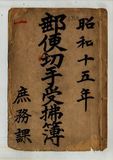 昭和十五年
郵便切手受拂簿
庶務課